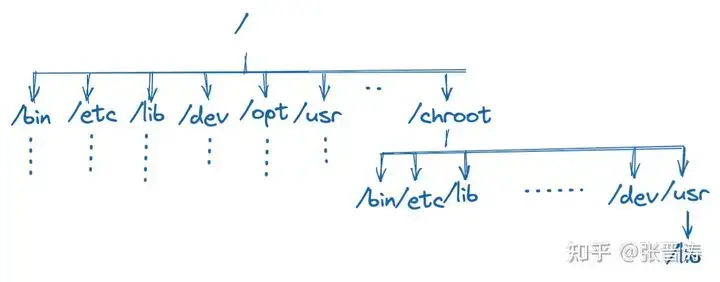 /
/bin /etc /lib /dev /opt /usr .. /chroot
/bin /etc /lib ...... /dev /usr
/lib
知乎 @张晋涛